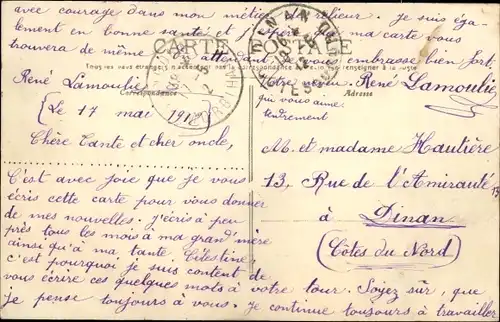 avec courage dans mon métier de relieur. Je suis éga-
lement en bonne santé et j'espère que ma carte vous
trouvera de même. En attendant je vous embrasse bien fort.
CARTE POSTALE
Tous les pays étrangers n'acceptent pas la correspondance au recto. (Se renseigner à la Poste)
Correspondance
Adresse
René Lamoulie
Le 17 mai 1912
Chère Tante et cher oncle,
C'est avec joie que je vous
écris cette carte pour vous donner
de mes nouvelles. J'écris à peu
près tous les mois à ma grand'mère
ainsi qu'à ma tante Célestine,
c'est pourquoi je suis content de
vous écrire ces quelques mots à votre tour. Soyez sûr, que
je pense toujours à vous. Je continue toujours à travailler
Votre neveu René Lamoulie,
qui vous aime
tendrement
M. et madame Hautière
13, Rue de l'Amirauté 13
à
Dinan
(Côtes du Nord)